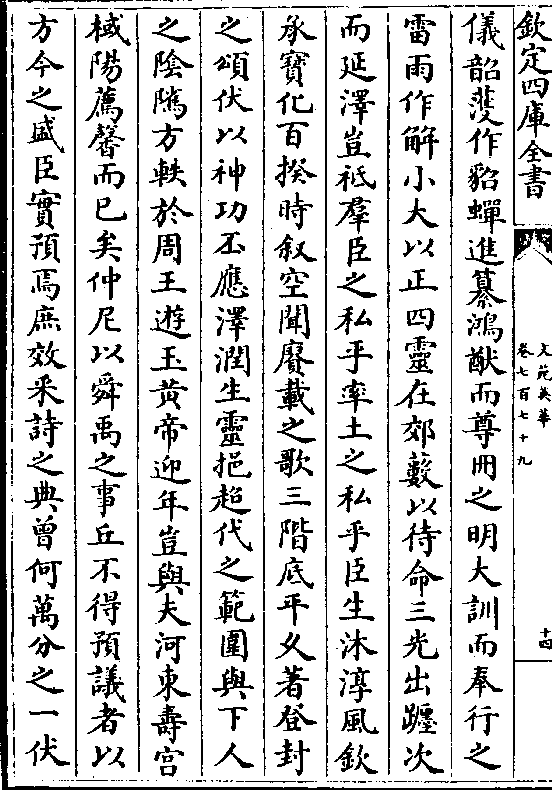 欽定四庫全書
文苑英華
卷七百七十九
十四
儀韶濩作貂蟬進纂鴻猷而尊冊之明大訓而奉行之
雷雨作解小大以正四靈在郊藪以待命三光出躔次
而延澤豈祗羣臣之私乎率土之私乎臣生沐淳風欽
承寶化百揆時叙空聞賡載之歌三階底平久著登封
之頌伏以神功丕應澤潤生靈挹超代之範圍與下人
之陰隲方軼於周王遊玉黃帝迎年豈與夫河東壽宮
棫陽薦馨而已矣仲尼以舜禹之事丘不得預議者以
方今之盛臣實預焉庶效采詩之典曾何萬分之一伏